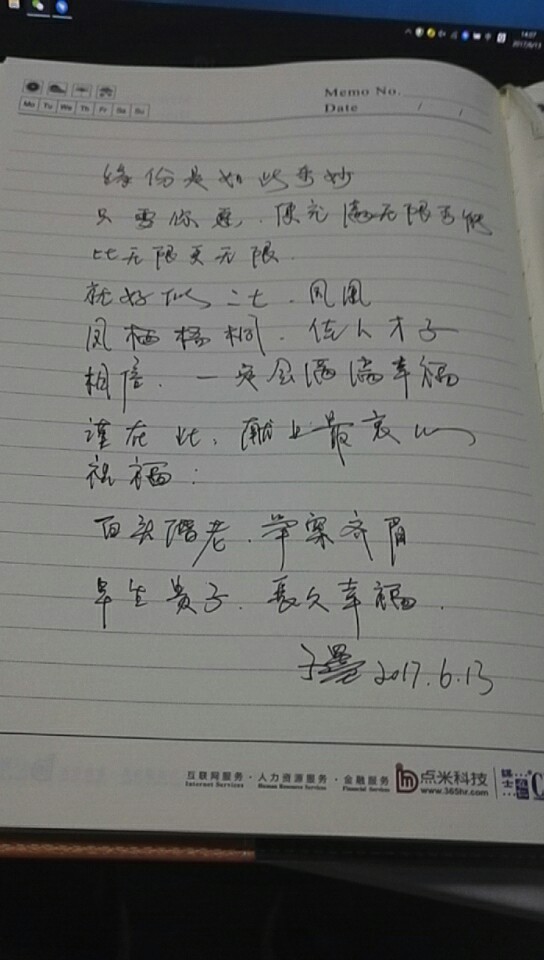 14:07
2017/6/13
Memo No.
Mo Tu We Th Fr Sa Su
Date / /
缘份是如此奇妙
只要你愿，便充满无限可能
比无限更无限．
就好似二七，凤凰
凤栖梧桐．佳人才子
相信．一定会满满幸福
谨在此，献上最衷心
祝福：
白头谐老．举案齐眉
早生贵子．長久幸福．
子墨 2017.6.13
互联网服务 · 人力资源服务 · 金融服务 点米科技
Internet Services Human Resource Services Financial Services www.365hr.com